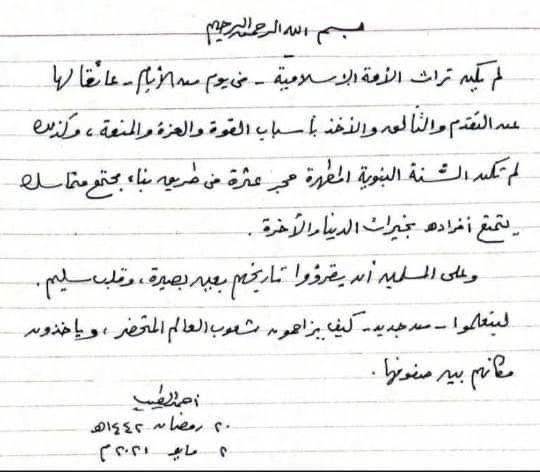 بسم الله الرحمن الرحيم
لم يكن تراث الأمة الإسلامية - في يوم من الأيام - عائقا لها
عن التقدم والتألق والأخذ بأسباب القوة والعزة والمنعة، وكذلك
لم تكن السُّنة النبوية المطهرة حجر عثرة في طريق بناء مجتمع متماسك
يتمتع أفراده بخيرات الدنيا والآخرة.
وعلى المسلمين أن يقرؤوا تاريخهم بعين بصيرة، وقلب سليم.
ليتعلموا - من جديد - كيف يزاحمون شعوب العالم المتحضر، ويأخذون
مكانهم بين صفوفها.
أحمد الطيب
٢٠ رمضان ١٤٤٢هـ
٢ مايو ٢٠٢١م